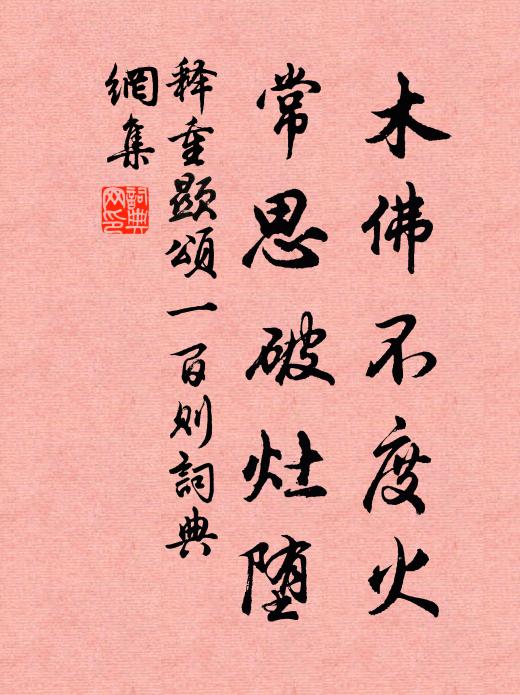 木佛不度火
常思破灶堕
释重顯頌一百则詞典
網集
詞典
网印